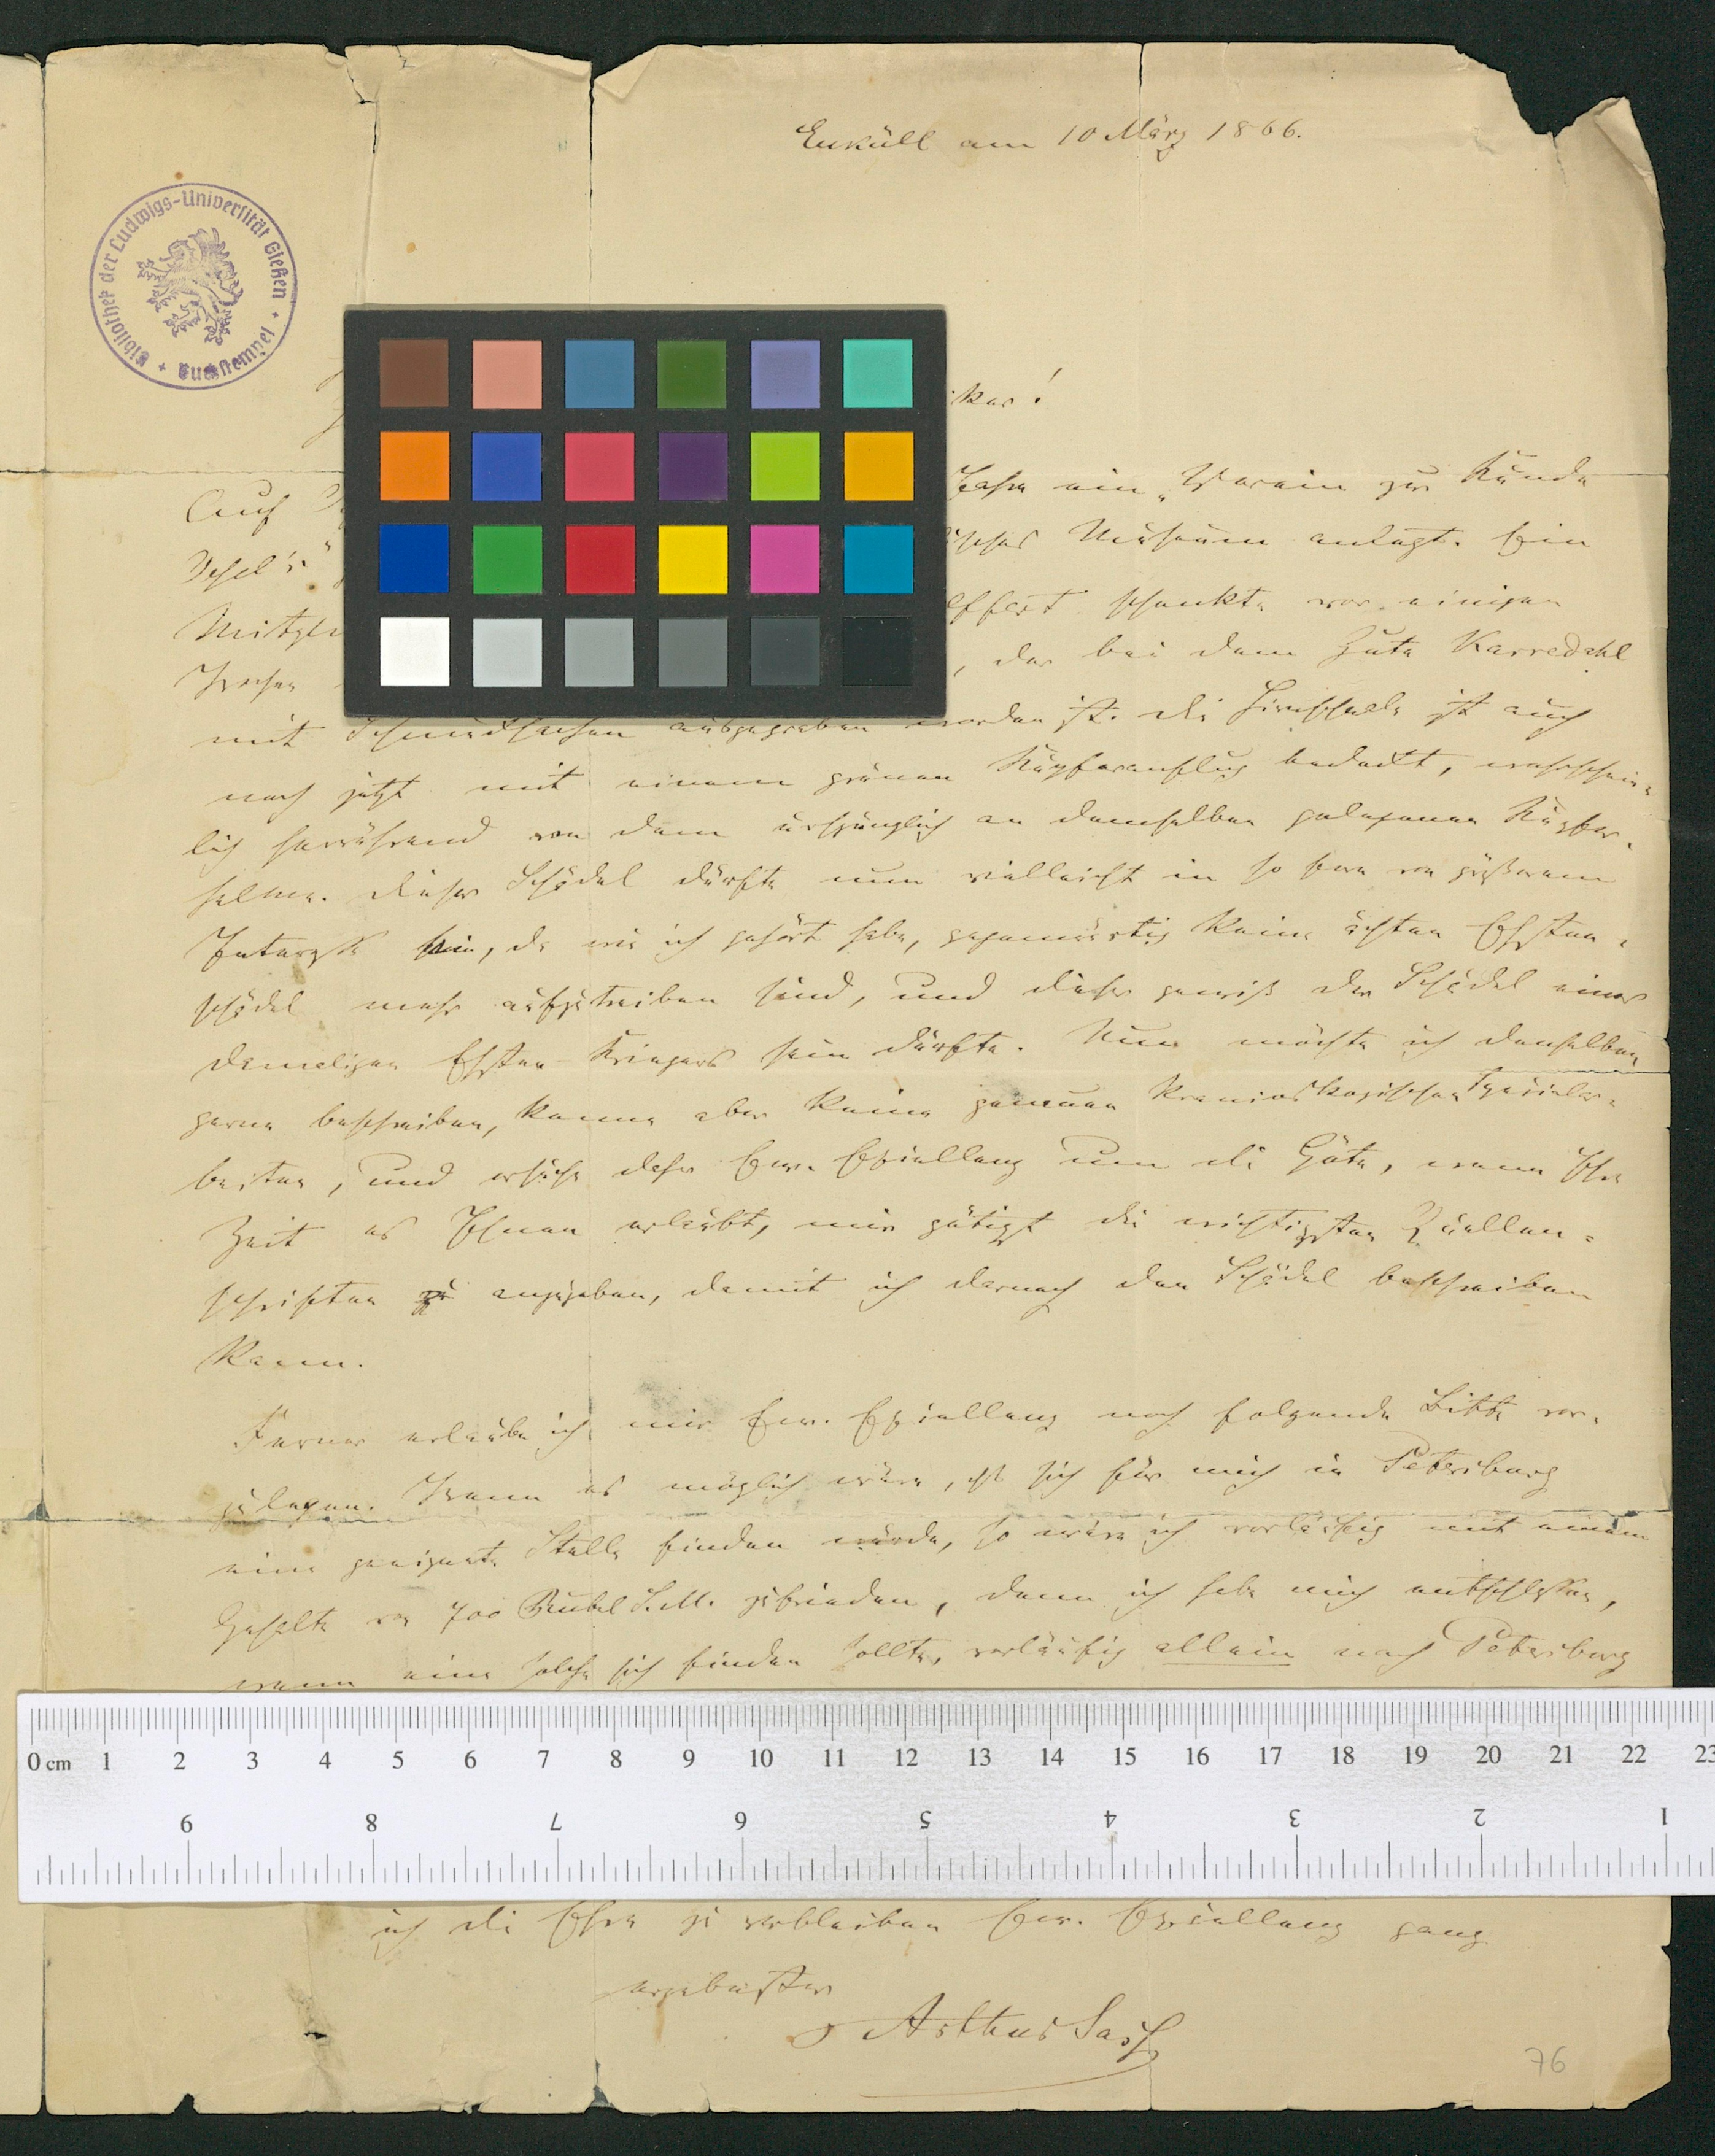 Euküll am 10 März 1866.
Bibliothek der Ludwigs-Universität Gießen
ker!
Auf
Jahre ein „Verein zur Kunde
Oesel's"
Museum anlegt. Ein
Mitglied
schenkte vor einigen
Wochen
, der bei dem Gute Karredahl
mit Schmucksachen ausgegraben worden ist. Die Hirnschale ist auch
noch jetzt mit einem grünen Kupferanflug bedeckt, wahrschein-
lich herrührend von dem ursprünglich an demselben gelegenen Kupfer-
helme. Dieser Schädel dürfte nun vielleicht in so fern von größerem
Interesse sein, da wie ich gehört habe, gegenwärtig keine ächten Ehsten-
schädel mehr aufzutreiben sind, und dieser gewiß der Schädel eines
damaligen Ehsten-Kriegers sein dürfte. Nun möchte ich denselben
gerne beschreiben, kenne aber keine genauen kranioskopischen Specialar-
beiten, und ersuche daher Ew. Excellenz um die Güte, wenn Ihre
Zeit es Ihnen erlaubt, mir gütigst die wichtigsten Quellen-
schriften zu angegeben, damit ich darnach den Schädel beschreiben
kann.
Ferner erlaube ich mir Ew. Excellenz noch folgende Bitte vor-
zulegen. Wenn es möglich wäre, daß sich für mich in Petersburg
eine geeignete Stelle finden würde, so wäre ich vorläufig mit einem
Gehalte von 700 Rubel S.M. zufrieden, denn ich habe mich entschlossen,
wenn eine solche sich finden sollte, vorläufig allein nach Petersburg
0 cm 1 2 3 4 5 6 7 8 9 10 11 12 13 14 15 16 17 18 19 20 21 22 23
9 8 7 6 5 4 3 2 1
ich die Ehre zu verbleiben Ew. Excellenz ganz
ergebenster
Arthur Sass
76